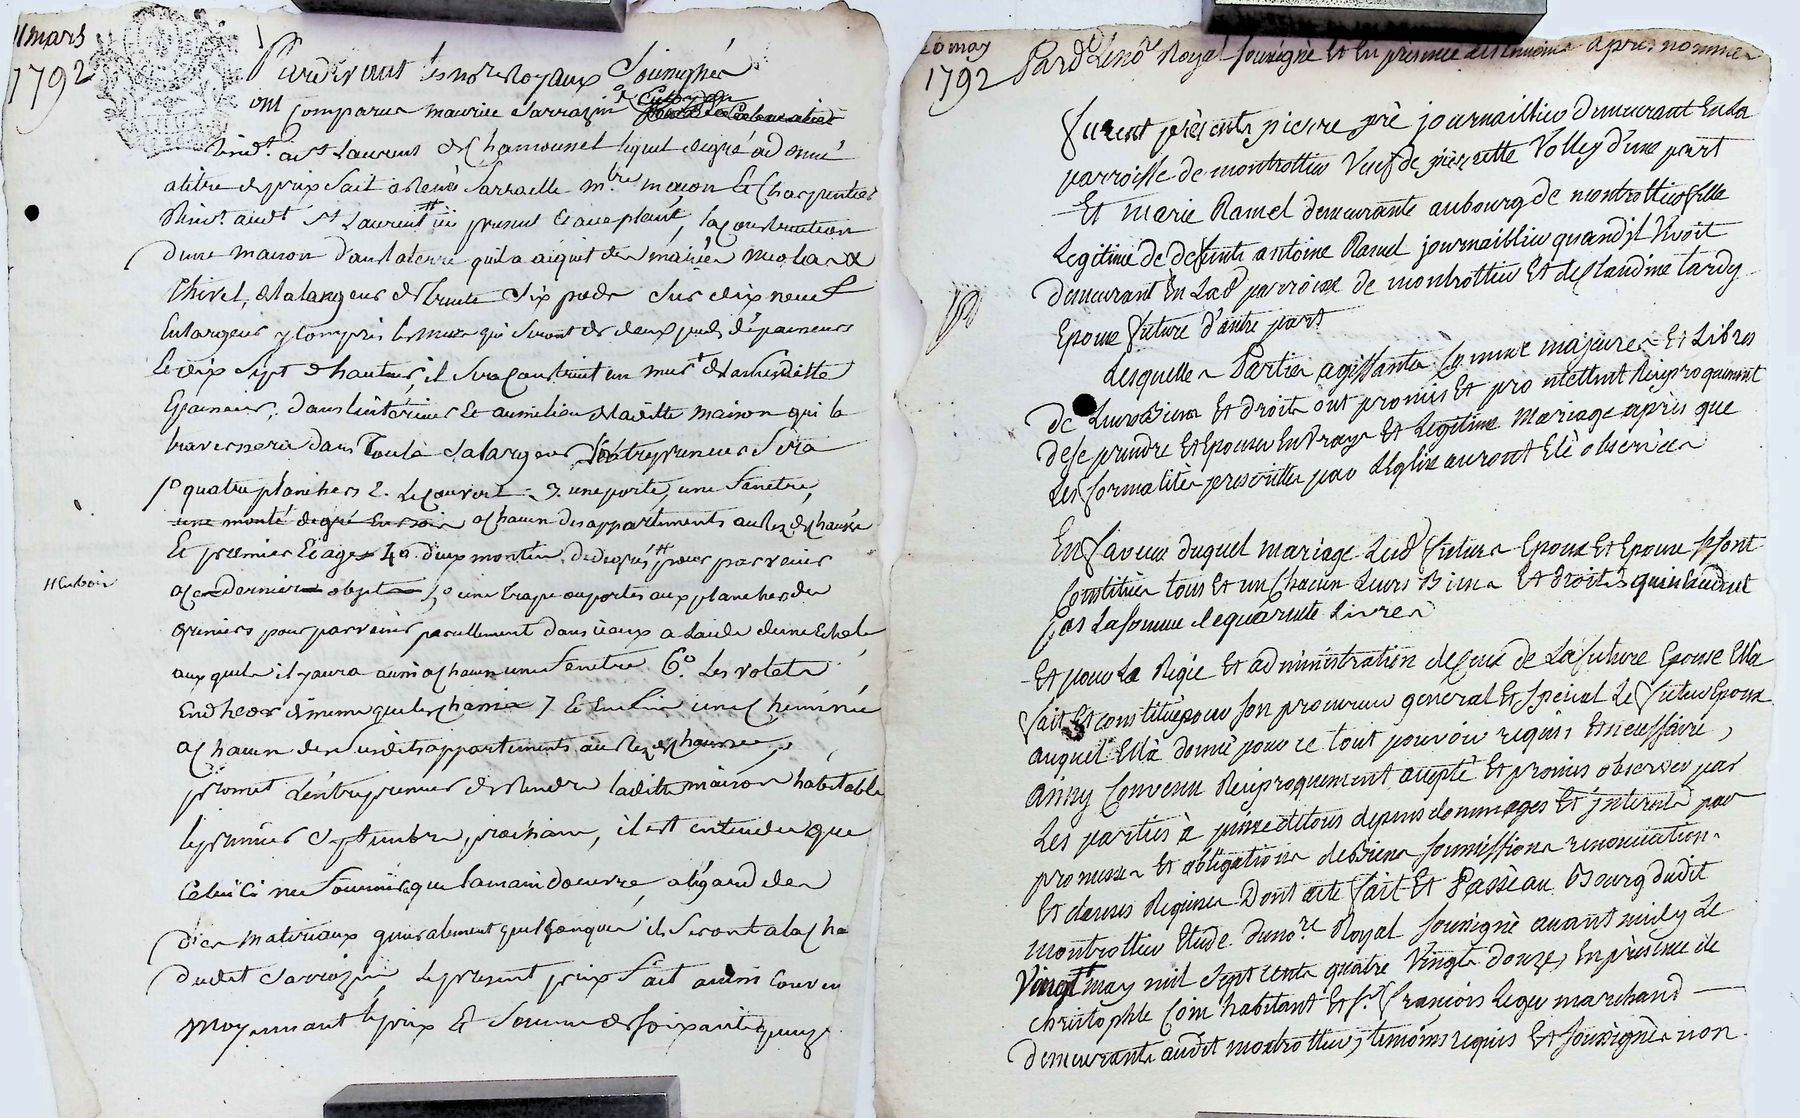 11 mars
1792
Pardevant les no.re Royaux Soussignés
ont Comparu maurice Sarrazin
a St Laurent de Chamousset lequel degré a donné
atitre de prix fait a René Sarraille m.tre maçon et Charpentier
St Laurent ici present et acceptant, la Construction
d'une maison dans la terre qu'il a aiquit de
Thivel, de la longeur de trente six pieds sur dix neuf
En largeur y Compris les murs qui seront de deux pieds d'épaisseurs
et dix sept de hauteur, il sera Construit un mur de la susditte
Epaisseur, dans l'intérieur et au milieu de laditte maison qui la
traversera dans toute sa largeur L'entrepreneur Sera
1º quatre planchers 2. Le Couvert 3. une porte, une fenêtre,
une monté degré En bois a chacun des appartements au Rez de chaussé
Et premier Etage 4º. deux montées de degrés pour parvenir
a ces derniers objets 5º une trape ou portes aux planchers des
greniers pour parvenir pareillement dans iceux a L'aide d'une Echelle
aux quels il y aura aussi a chacun une fenêtre 6.º Les volets
7 Et Enfin une Cheminée
a chacun des susdits appartements au Rez de chaussée,
promet L'entrepreneur de Rendre laditte maison habitable
le premier Septembre prochain, il est entendu que
Celui Ci ne fournira que la main d'oeuvre, a légard des
materiaux généralement quelconques ils seront a la cha
dudit Sarrazin, le present prix fait aussi Conven
Moyennant le prix Et Somme de soixante quinz
# En bois
20 may
1792
Pard.t Le no.re Royal soussigné Et En presence des temoins apres nommes
furent présents pierre pré journaillier demeurant En La
parroisse de montrottier Veuf de pierrette Volley d'une part
Et marie Ramel demeurante au bourg de montrottier fille
Legitime de deffunt antoine Ramel journaillier quand il Vivoit
demeurant En Lad parroisse de montrottier Et de Claudine tardy
Epouse future d'autre part
Lesquelles Parties agissantes Comme majeures Et Libres
de Leurs Biens Et droits ont promis Et promettent Réciproquement
de se prendre Et Epouser En Vraye Et Legitime Mariage après que
Les formalités prescrittes par L'Eglise auront Eté observées
En faveur duquel mariage Lesd futurs Epoux Et Epouse se font
Constitués tous Et un Chacun Leurs Biens Et droits qui n'Excedent
pas La somme de quarante Livres
Et pour La Régie Et administration de Ceux de La future Epouse Elle
fait Et constitue pour son procureur general Et special Le futur Epoux
auquel Elle donne pour ce tout pouvoir requis Et necessaire,
ainsy Convenu Réciproquement accepté Et promis observer par
Les parties à peine de tous depens dommages Et interets par
promesses Et obligations de Biens soumissions renonciations
Et clauses Requises Dont acte fait Et Passé au Bourg dudit
montrottier Etude du no.re Royal soussigné avant midy Le
Vingt may mil sept cents quatre Vingts douze, En présence de
christophle Coin habitant Et s.r françois Leger marchand
demeurants audit montrottier, temoins requis Et soussignés non